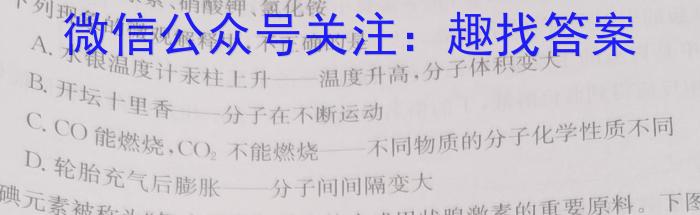 硝酸钾、氯化铵
下列现
微信公众号关注：趣找答案
A. 水银温度计汞柱上升——温度升高，分子体积变大
B. 开坛十里香——分子在不断运动
C. CO 能燃烧，CO₂ 不能燃烧——不同物质的分子化学性质不同
D. 轮胎充气后膨胀——分子间间隔变大
碘元素被称为
状腺激素的重要原料。下图